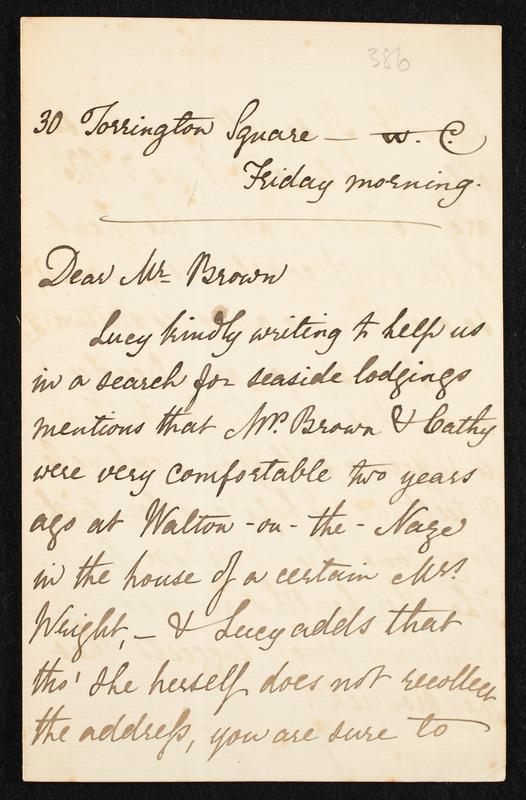 386
30 Torrington Square — W. C.
Friday morning.
Dear Mr. Brown
Lucy kindly writing to help us
in a search for seaside lodgings
mentions that Mrs. Brown & Cathy
were very comfortable two years
ago at Walton-on-the-Naze
in the house of a certain Mrs.
Wright, — & Lucy adds that
tho' she herself does not recollect
the address, you are sure to